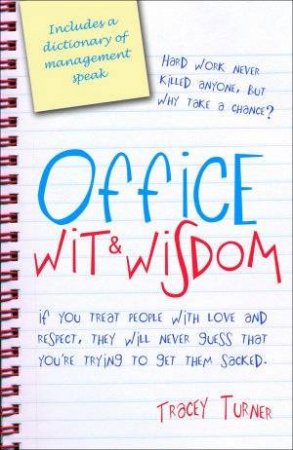 Includes a
dictionary of
management
speak
HARD WORK NEVER
KILLED ANYONE, BUT
WHY TAKE A CHANCE?
OFFICE
WIT & WISDOM
IF YOU TREAT PEOPLE WITH LOVE AND
RESPECT, THEY WILL NEVER GUESS THAT
YOU'RE TRYING TO GET THEM SACKED.
TRACEY TURNER